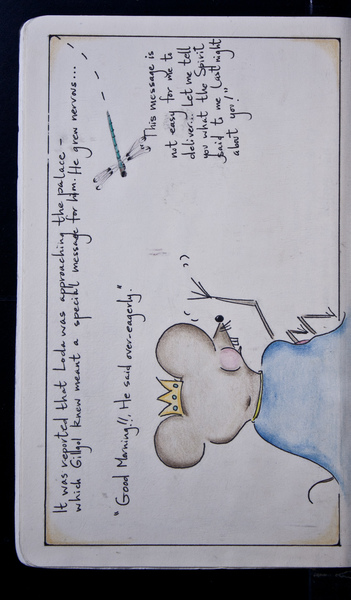 It was reported that Loda was approaching the palace -
which Gillgol knew meant a special message for him. He grew nervous...
"Good Morning!!, He said over-eagerly.
"This message is
not easy for me to
deliver... Let me tell
you what the Spirit
said to me last night
about you!"